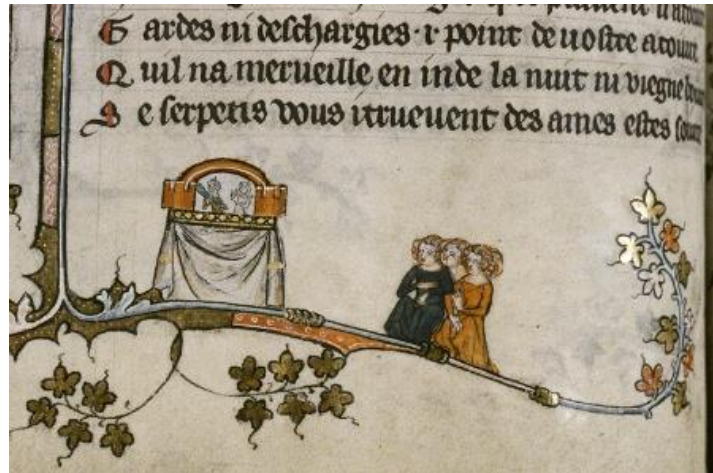 Gardes ni deschargies · r point de uostre atour
Quil na merueille en inde la nuit ni viegne
Se serpetis vous itrueuent des ames estes